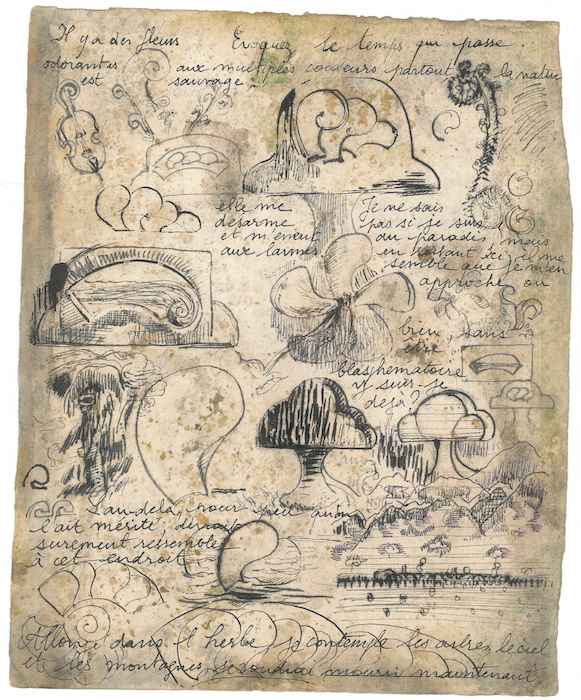 Il y a des fleurs Evoquez le temps qui passe.
odorantes aux multiples couleurs partout la nature
est sauvage,
elle me
désarme
et m'émeut
aux larmes
Je ne sais
pas si je suis
au paradis mais
en restant ici il me
semble que je m'en
approche ou
bien, sans
être
blasphematoire
y suis-je
déjà?
L'au-delà, pour peu qu'on
l'ait mérité, devrait
surement ressembler
à cet endroit
Allongé dans l'herbe je contemple les arbres le ciel
et les montagnes, je voudrai mourir maintenant